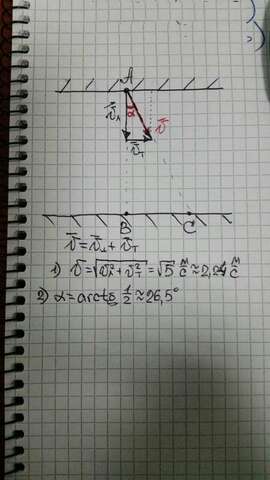 A
α
v⃗л
v⃗
v⃗т
B
C
v⃗ = v⃗л + v⃗т
1) v = √(vл² + vт²) = √5 м/с ≈ 2,24 м/с
2) α = arctg 1/2 ≈ 26,5°